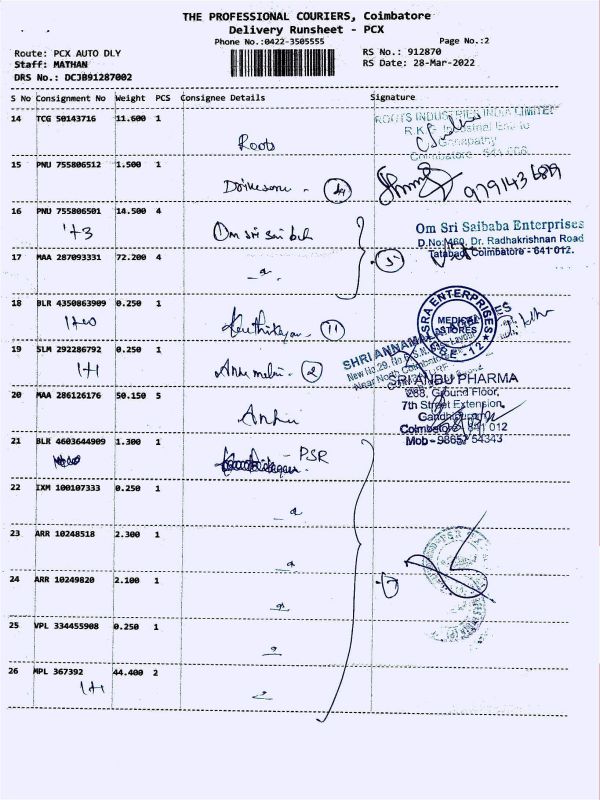 THE PROFESSIONAL COURIERS, Coimbatore
Delivery Runsheet - PCX
Phone No.:0422-3505555
Page No.:2
Route: PCX AUTO DLY
RS No.: 912870
Staff: MATHAN
RS Date: 28-Mar-2022
DRS No.: DCJB91287002
S No Consignment No Weight PCS Consignee Details Signature
14 TCG 50143716 11.600 1
Roots
ROOTS INDUSTRIES INDIA LIMITED
Ganapathy
Coimbatore - 641 006.
15 PNU 755806512 1.500 1
16 PNU 755806501 14.500 4
Om sri sai bab
Om Sri Saibaba Enterprises
D.No:M60, Dr. Radhakrishnan Road
Tatabad, Coimbatore - 641 012.
17 MAA 287093331 72.200 4
18 BLR 4350863909 0.250 1
11
SRA ENTERPRISES
MEDICAL
STORES
CBE - 12
19 SLM 292286792 0.250 1
1+1
2
SHRI ANNAMALAI
SRI ANBU PHARMA
20 MAA 286126176 50.150 5
Anbu
268, Ground Floor,
7th Street Extension,
Gandhipuram
Coimbatore - 641 012
Mob - 98657 54343
21 BLR 4603644909 1.300 1
- PSR
22 IXM 100107333 0.250 1
23 ARR 10248518 2.300 1
24 ARR 10249820 2.100 1
25 VPL 334455908 0.250 1
26 MPL 367392 44.400 2
1+1